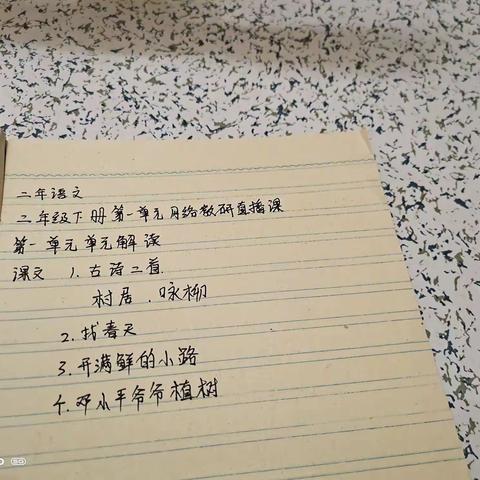 二年语文
二年级下册第一单元网络教研直播课
第一单元单元解读
课文 1.古诗二首.
村居.咏柳
2.找春天
3.开满鲜的小路
4.邓小平爷爷植树